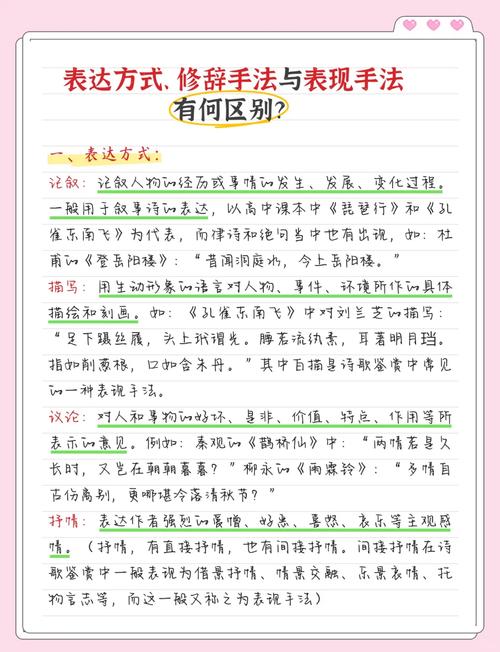 表达方式、修辞手法与表现手法
有何区别?
一、表达方式：
记叙：记叙人物的经历或事情的发生、发展、变化过程。
一般用于叙事诗的表达，以高中课本中《琵琶行》和《孔
雀东南飞》为代表，而律诗和绝句当中也有出现，如：杜
甫的《登岳阳楼》：“昔闻洞庭水，今上岳阳楼。”
描写：用生动形象的语言对人物、事件、环境所作的具体
描绘和刻画。如：《孔雀东南飞》中对刘兰芝的描写：
“足下蹑丝履，头上玳瑁光。腰若流纨素，耳著明月珰。
指如削葱根，口如含朱丹。”其中白描是诗歌鉴赏中常见
的一种表现手法。
议论：对人和事物的好坏、是非、价值、特点、作用等所
表示的意见。例如：秦观的《鹊桥仙》中：“两情若是久
长时，又岂在朝朝暮暮？”柳永的《雨霖铃》：“多情自
古伤离别，更哪堪冷落清秋节？”
抒情：表达作者强烈的爱憎、好恶、喜怒、哀乐等主观感
情。（抒情，有直接抒情，也有间接抒情。间接抒情在诗
歌鉴赏中一般表现为借景抒情、情景交融、乐景衷情、托
物言志等，而这一般又称之为表现手法）